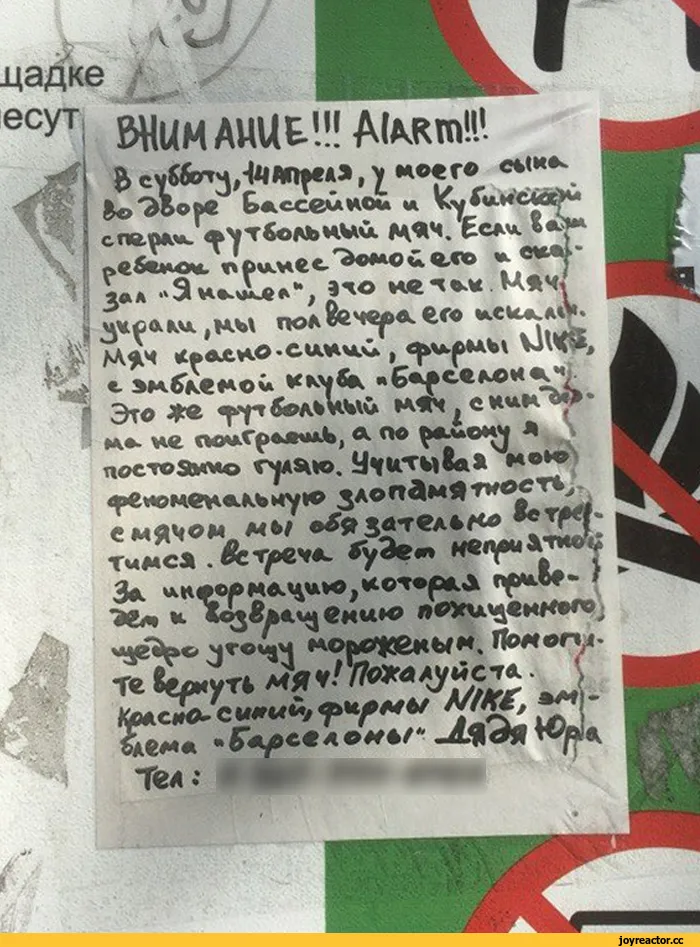 щадке
несут
ВНИМАНИЕ!!! Alarm!!!
В субботу, 14 апреля, у моего сына
во дворе Бассейной и Кубинской
сперли футбольный мяч. Если ваш
ребенок принес домой его и ска-
зал "Я нашел", это не так. Мяч
украли, мы пол вечера его искали.
Мяч красно-синий, фирмы NIKE,
с эмблемой клуба "Барселона".
Это же футбольный мяч, с ним до-
ма не поиграешь, а по району я
постоянно гуляю. Учитывая мою
феноменальную злопамятность,
с мячом мы обязательно встре-
тимся. Встреча будет неприятной
За информацию, которая приве-
дёт к возвращению похищенного,
щедро угощу мороженым. Помоги-
те вернуть мяч! Пожалуйста.
Красно-синий, фирмы NIKE, эм-
блема "Барселоны" Дядя Юра
Тел:
joyreactor.cc